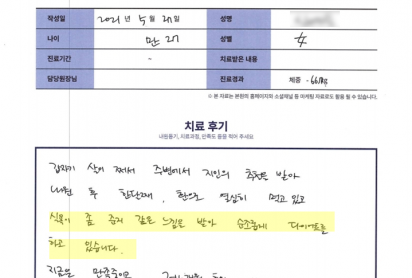 작성일 2021년 5월 21일 성명
나이 만 27 성별 女
진료기간 - 치료받은 내용
담당원장님 진료경과 체중 -6.6kg
※ 본 자료는 본원의 홈페이지와 소셜채널 등 마케팅 자료로도 활용 될 수 있습니다.
치료 후기
내원동기, 치료과정, 만족도 등을 적어 주세요
갑자기 살이 쪄서 주변에서 지인의 추천을 받아
내원 후 한단재, 환으로 열심히 먹고 있고
식욕이 좀 줄지 같은 느낌을 받아 순조롭게 다이어트를
하고 있습니다.
지금은 만족중이고